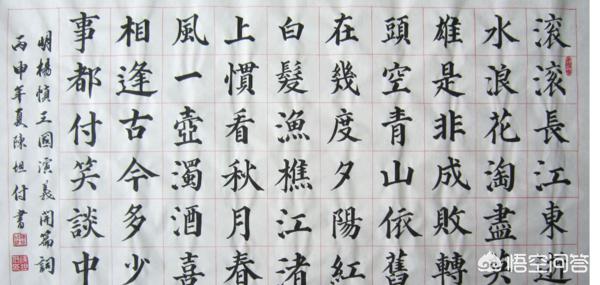 滚滚長江東逝
水浪花淘盡英
雄是非成敗轉
頭空青山依舊
在幾度夕陽紅
白髮漁樵江渚
上慣看秋月春
風一壺濁酒喜
相逢古今多少
事都付笑談中
明楊慎三國演義開篇詞
丙申年夏陳坦付書
悟空问答